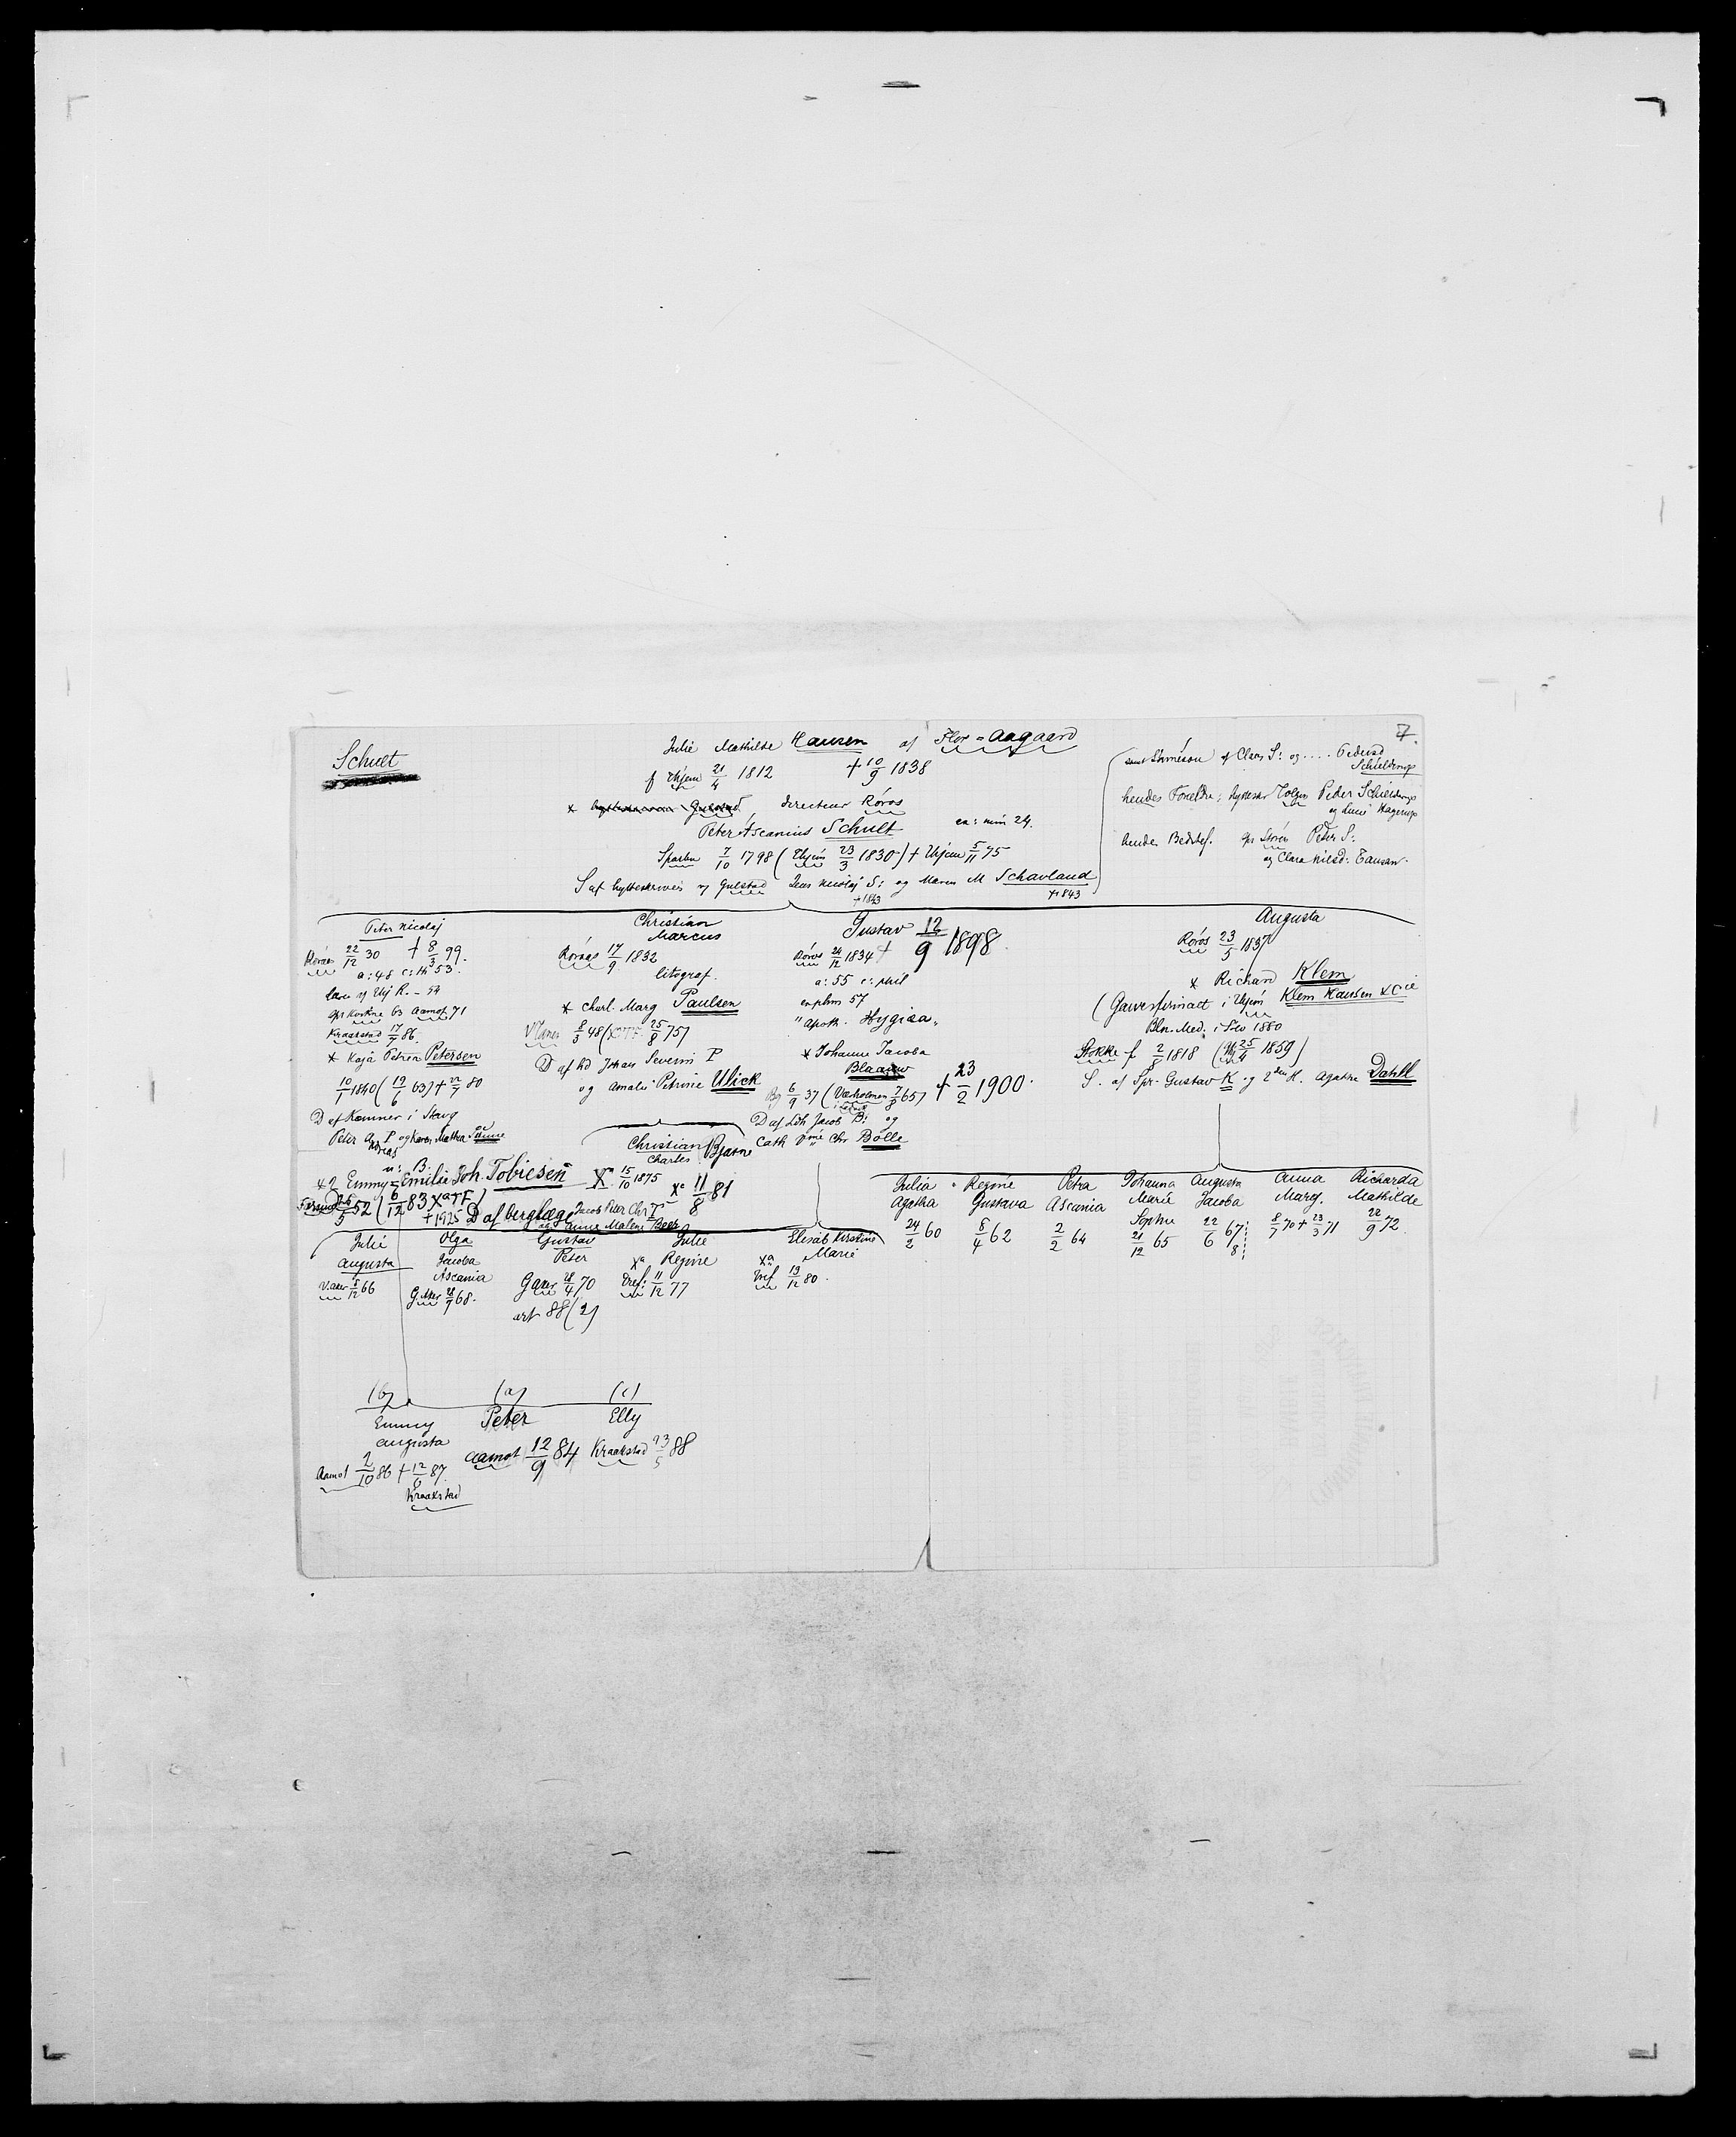 7.
Schult
Julie Mathilde Hansen af Flor = Aagaard
f Thjem 21/4 1812 † 10/9 1838
* directeur Röros
Peter Ascanius Schult ex: min 24.
Sparbu 7/10 1798 (Thjem 23/3 1830) † Thjem 5/11 75
S af hytteskriver v Gulstad Jens Nicolaj S: og Maren M Schavland
†1843 †1843
af Claus S: og .... Pedersd
Schielderup
hendes Foreldre; Tolgen Peder Schielderup
og Hagerup
hendes Bedstef. Peder S:
og Clara Nilsd: Tausan.
Peter Nicolaj
Röros 22/12 30 † 8/3 99.
a: 48 c: th 53.
Aamot 71
Kraakstad 17/7 86.
* Kaja Petrea Petersen
10/1 1840 (19/6 63) † 22/7 80
D af Kæmner i Skavg
Peter Andreas P og Karen Mathea
*2 Emmy Emilie Joh. Tobiesen
26/5 52 (6/12 83 Xa TF)
†1925 D af berglæge Jacob Peter Chr T
og Anne Malene Beck
Christian
Marcus
Röraas 17/9 1832
litograf.
* Charl. Marg Paulsen
8/3 48 (X TF 25/8 75)
D af Kd Johan Severin P
og Amalie Petrine Ulick
Christian
Charles
Xa 15/10 1875
Bjarne
Xa 11/8 81
Gustav 12/9 1898.
Röros 24/12 1834 †
a: 55 c: phil
ex phm 57
" apoth. Hygiæa "
* Johanne Jacoba
Blaauw
Bg 6/9 37 (Væholmen 7/8 65) † 23/2 1900.
D af Jacob B: og
Cath Chr Bølle
Augusta
Röros 23/5 1837
* Richard Klem
(Garverfirmaet i Thjem Klem Hansen & Cie
Bln. Med: 1880
Stokke f 2/8 1818 (25/4 1859)
S. af Spr. Gustav K og 2den H. Agathe Dahll
Julie
Augusta
V.aker 5/12 66
Olga
Jacoba
Ascania
G Aker 28/9 68.
Gustav
Peter
G aker 28/4 70
art 88 (2)
Julie
Xa Regine
Tref: 11/12 77
Elisab Kirstine
Xa Marie
Tref 13/12 80.
Julia
Agatha
24/2 60
Regine
Gustava
8/4 62
Petra
Ascania
2/2 64
Johanna
Marie
Sophie
21/12 65
Augusta
Jacoba
22/6 67
Anna
Marg.
8/7 70 † 23/3 71
Richarda
Mathilde
22/9 72.
(b) (a) (c)
Emmy
Augusta
Aamot 2/10 86 † 12/6 87.
Kraakstad
Peter
Aamot 12/9 84
Elly
Kraakstad 23/5 88